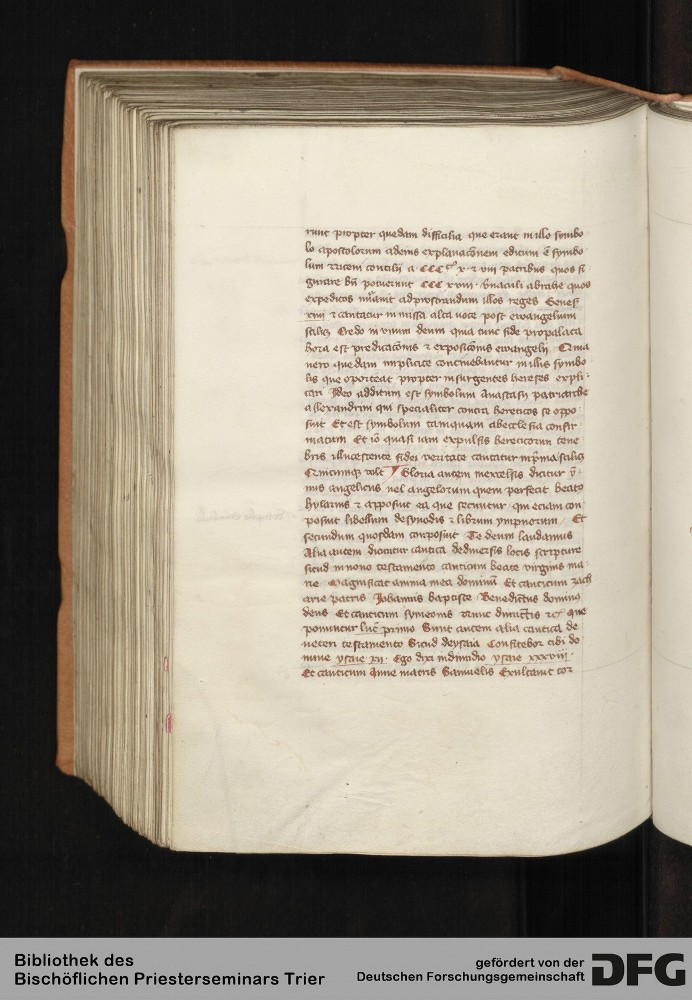 runt propter quedam difficilia que erant in illo symbo
lo apostolorum ad eius explanacōnem editum ē symbo
lum Niceni concilii a CCC x ⁊ viii patribus quos fi
gurare bn̄ potuerunt CCC xviii vnaculi abrahe quos
expeditos ad prostrandum illos reges Genes
xiiii ⁊ cantatur in missa alta voce post ewangelium
scilicꝫ Credo in vnum deum quia tunc fide propalata
hora est predicacōnis ⁊ expositōnis ewangelij Quia
uero quedam implicite continebantur in illis symbo
lis que oporteat propter insurgentes hereses expli
cari Ideo additum est symbolum Anastasij patriarche
allexandrini qui specialiter contra hereticos se oppo
suit Et est symbolum tamquam ab ecclesia confir
matum Et iō quasi iam expulsis hereticorum tene
bris illucescente fidei veritate cantatur in pͥma scilicꝫ
Quicumqꝫ vult Gloria autem in excelsis dicitur ẏ
nus angelicus uel angelorum quem perfecit beatꝰ
hylarius ⁊ apposuit ea que secuntur qui etiam con
posuit libellum de synodis ⁊ librum ympnorum Et
secundum quosdam conposuit Te deum laudamus
Alia autem dicuntur cantica de diuersis locis scripture
sicud in nouo testamento canticum beate virginis ma
rie Magnificat anima mea dominū Et canticum zach
arie patris Johannis baptiste Benedictus dominꝰ
deus Et canticum symeonis Nunc dimittis ⁊cͣ que
ponuntur luc̄ primo Sunt autem alia cantica de
ueteri testamento Sicud de ysaia Confitebor tibi do
mine ysaie xii Ego dixi in dimidio ysaie xxxviii
Et canticum Anne matris Samuelis Exultauit cor
Bibliothek des
Bischöflichen Priesterseminars Trier
gefördert von der
Deutschen Forschungsgemeinschaft
DFG